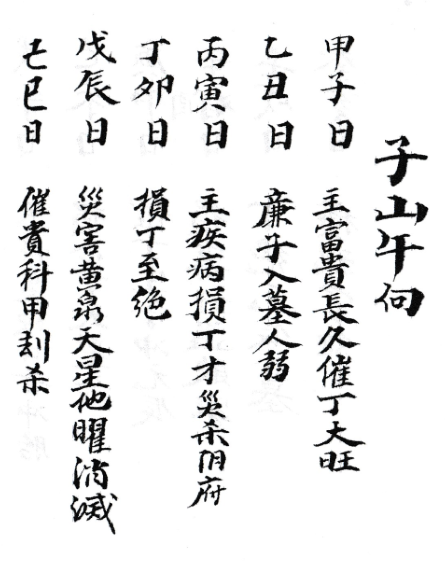 子山午向
甲子日 主富貴長久催丁大旺
乙丑日 廉子入墓人弱
丙寅日 主疾病損丁才災杀阴府
丁卯日 損丁至绝
戊辰日 災害黄泉天星他曜消滅
己巳日 催貴科甲刦杀